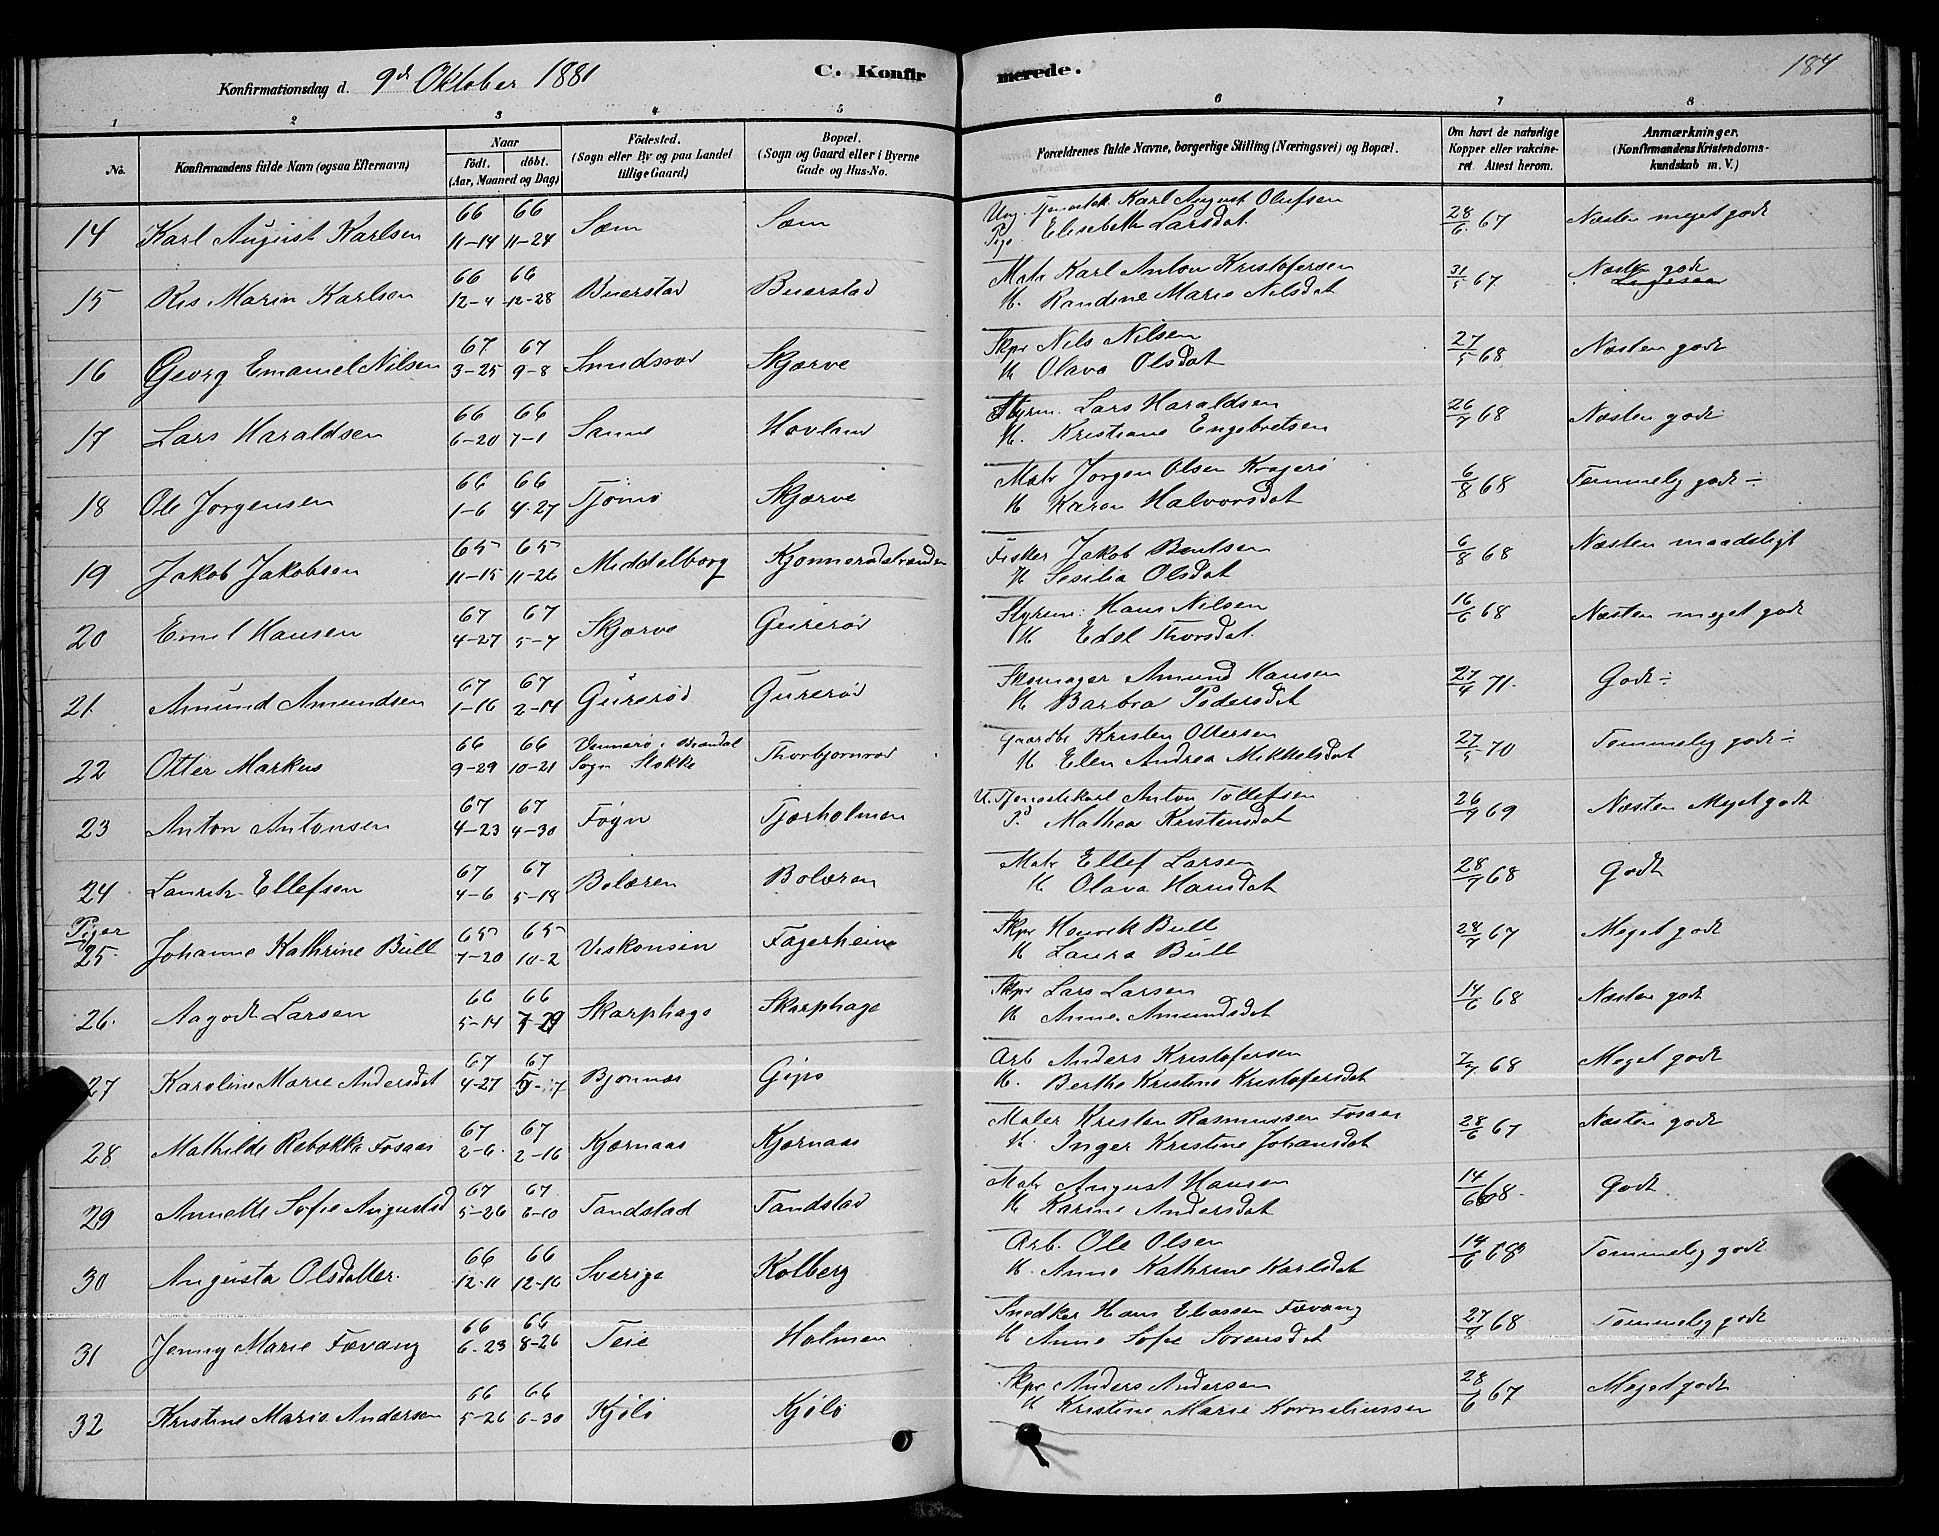 Konfirmationsdag d. 9d Oktober 1881
C. Konfirmerede.
184
1 2 3 4 5 6 7 8
No.
Konfirmandens fulde Navn (ogsaa Efternavn)
Naar
födt. döbt.
(Aar, Maaned og Dag)
Födested.
(Sogn eller By og paa Landet
tillige Gaard)
Bopæl.
(Sogn og Gaard eller i Byerne
Gade og Hus-No.
Forældrenes fulde Navne, borgerlige Stilling (Næringsvei) og Bopæl.
Om havt de naturlige
Kopper eller vakcine-
ret. Attest herom.
Anmærkninger.
(Konfirmandens Kristendoms-
kundskab m. V.)
66 66 Ung. Karl August Olufsen
14 Karl August Karlsen 11-14 11-24 Sæm Sæm Pige Elisabeth Larsdat 28/6 67 Næsten meget godt
66 66 Matr Karl Anton Kristofersen
15 Marin Karlsen 12-4 12-28 Buerstad Buerstad H. Randine Marie Nilsdat 31/5 67 Næsten godt
67 67 Skpr Nils Nilsen
16 Georg Emanuel Nilsen 3-25 9-8 Smidsrød Skjærve H Olava Olsdat 27/5 68 Næsten godt
66 66 Styrm. Lars Haraldsen
17 Lars Haraldsen 6-20 7-1 Sanne Hovland H. Kristiane Engebretsen 26/7 68 Næsten godt
66 66 Matr Jorgen Olsen Kragerø
18 Ole Jorgensen 1-6 4-27 Tjømø Skjærve H Karen Halvorsdat 6/8 68 Temmelig godt ÷
65 65 Fisker Jakob Bentsen
19 Jakob Jakobsen 11-15 11-26 Middelborg Kjønnerødstranden H Sesilia Olsdat 6/8 68 Næsten maadeligt
67 67 Styrm. Hans Nilsen
20 Emil Hansen 4-27 5-7 Skjærve Geirerød H Edel Thorsdat 16/6 68 Næsten meget godt
67 67 Skomager Amund Hansen
21. Amund Amundsen 1-16 2-14 Gurerød Gurerød H Barbra Pedersdat 27/4 71. Godt ÷
66 66 Gaardbr Kristen Ottersen
22 Otter Markus 9-29 10-21 Sogn Stokke Thorbjornrød H Elen Andrea Mikkelsdat 27/5 70 Temmelig godt ÷
67 67 U. Tjenestekarl Anton Tollefsen
23 Anton Antonsen 4-23 4-30 Føgn Tjørholmen P. Mathea Kristensdat 26/9 69 Næsten Meget godt
67 67 Matr Ellef Larsen
24 Laurits Ellefsen 4-6 5-18 Bolæren Bolæren H Olava Hansdat 28/7 68 Godt
Piger
65 65 Skpr Henrik Bull
25. Johanne Kathrine Bull 7-20 10-2 Viskonsin Fagerheim H Laura Bull 28/7 67 Meget godt
66 66 Skpr Lars Larsen
26. Aagodt Larsen 5-14 7-29 Skarphage Skarphage H Anne Amundsdat 14/6 68 Næsten godt
67 67 Arb Anders Kristofersen
27 Karoline Marie Andersdat 4-27 Bjønnæs Gipø H. Berthe Kristine Kristofersdat 7/7 68 Meget godt
67 67 Maler Kristen Rasmussen Fosaas
28 Mathilde Rebekka Fosaas 2-6. 2-16 Kjærnaas Kjærnaas H. Inger Kristine Johansdat 28/6 67 Næsten godt
67 67 Matr August Hansen
29 Annette Sofie Augustsd 5-26 6-10 Tandstad Tandstad H Karine Andersdat 14/6 68. Godt
66 66 Arb. Ole Olsen
30 Augusta Olsdatter. 12-11 12-16 Sverige Kolberg H. Anne Kathrine Karlsdat 14/6 68 Temmelig godt
66 66 Snedker Hans Eliassen Fævang
31 Jenny Marie Fævang 6-23 8-26 Teie Holmen H Anne Sofie Sorensdat 27/8 68 Temmelig godt
66 66 Skpr Anders Andersen
32 Kristine Marie Andersen 5-26 6-30 Kjølø Kjølø H Kristine Marie Korneliussen 28/6 67 Meget godt